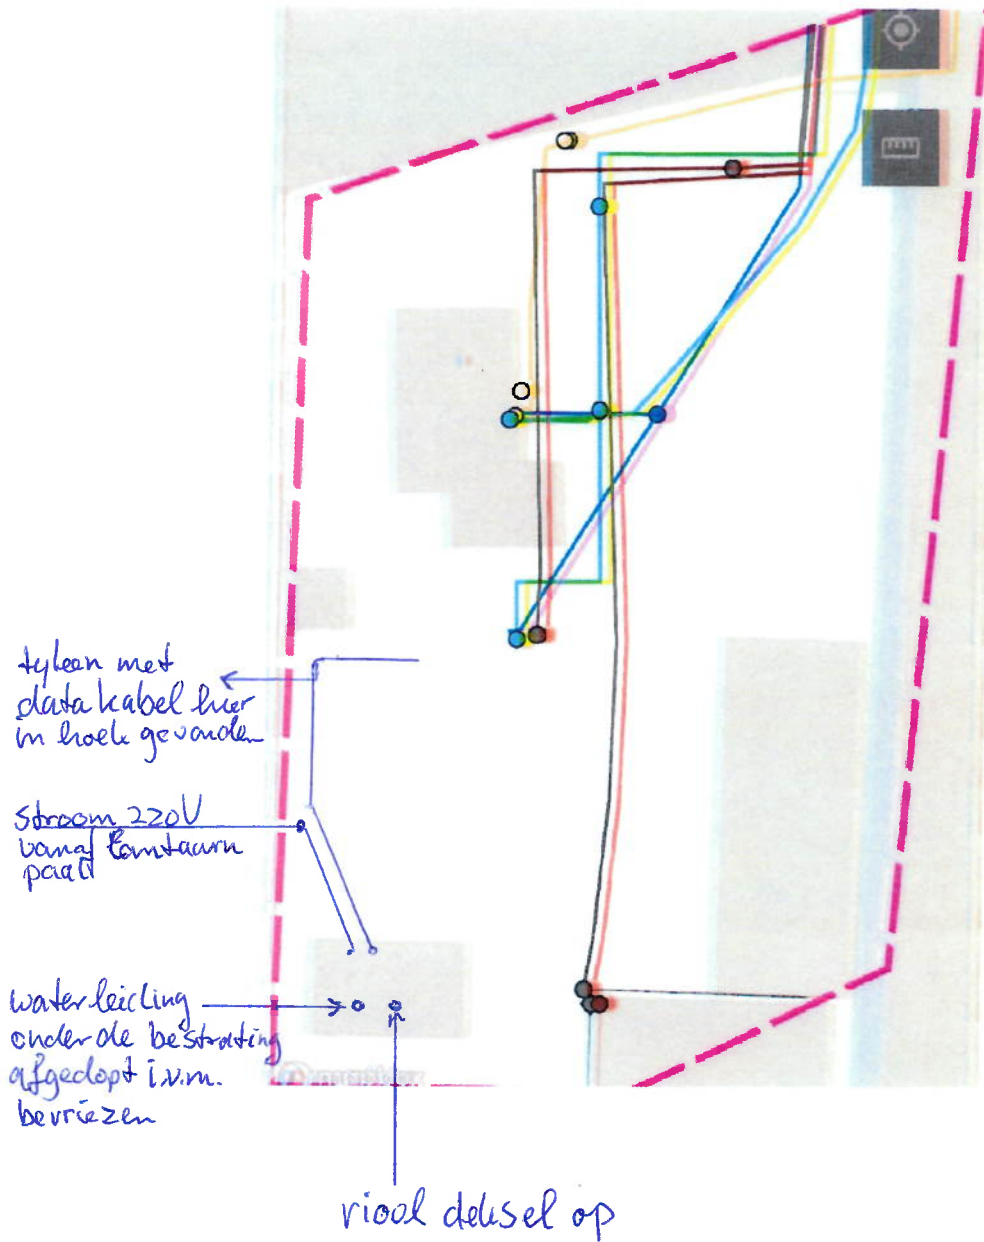 tyleen met
data kabel hier
in hoek gevonden
stroom 220V
vanaf lantaarn
paal
waterleiding
onder de bestrating
afgedopt i.v.m.
bevriezen
riool deksel op